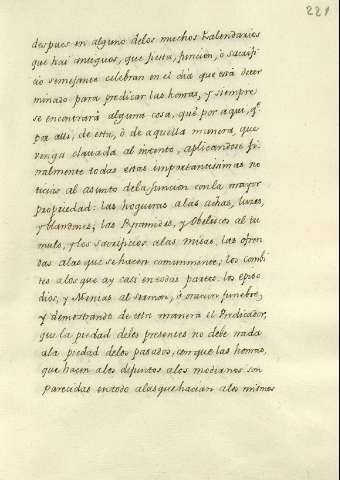 221
despues en alguno delos muchos Kalendarios
que hai antiguos, que fiesta, funcion, ò sacrifi-
cio semejante celebran en el dia que està deter
minado para predicar las honras, y siempre
se encontrarà alguna cosa, què por aqui, qe
por alli, de esta, ò de aquella manera, que
venga clavada al intento, aplicandose fi-
nalmente todas estas importantissimas no
ticias al asunto dela funcion conla mayor
propriedad: las hogueras alas achas, luces,
y blandones; las Pyramides, y Obeliscos al tu
mulo, y los sacrificios alas misas, las ofren
das alas que se hacen comunmente; los combi
tes alos que ay casi entodas partes. los episo
dios, y Nenias al sermon, ò oracion funebre,
y demostrando de esta manera el Predicador,
que la piedad delos presentes no debe nada
ala piedad delos pasados, con que las honras,
que hacen alos difuntos alos modernos son
parecidas entodo alas que hacian alos mismos